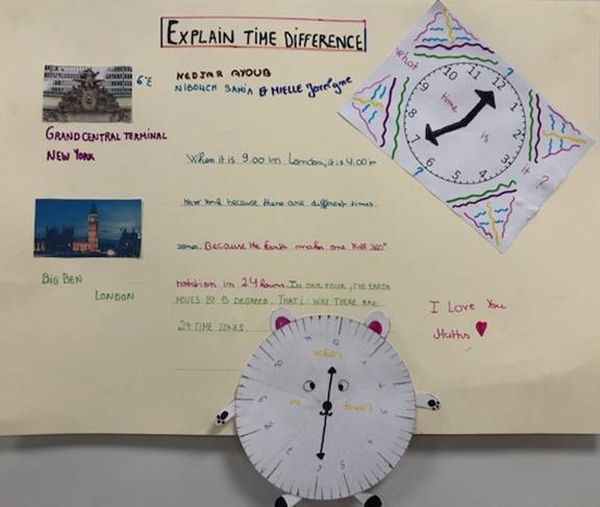 EXPLAIN TIME DIFFERENCE
NEDJAR AYOUB
6°E
NIBOUCH SANIA ET MIELLE
GRAND CENTRAL TERMINAL
NEW YORK
When it is 9.00 in London, it is 4.00 in
New York because there are different times
zones. Because the Earth makes one full 360°
rotation in 24 hours. IN ONE FOUR, THE EARTH
MOVES BY 15 DEGREES. THAT WHY THERE ARE
24 TIME ZONES
BIG BEN
LONDON
I Love You
Maths
what
time
is
it ?
?
?
12
1
2
3
4
5
6
7
8
9
10
11
what's